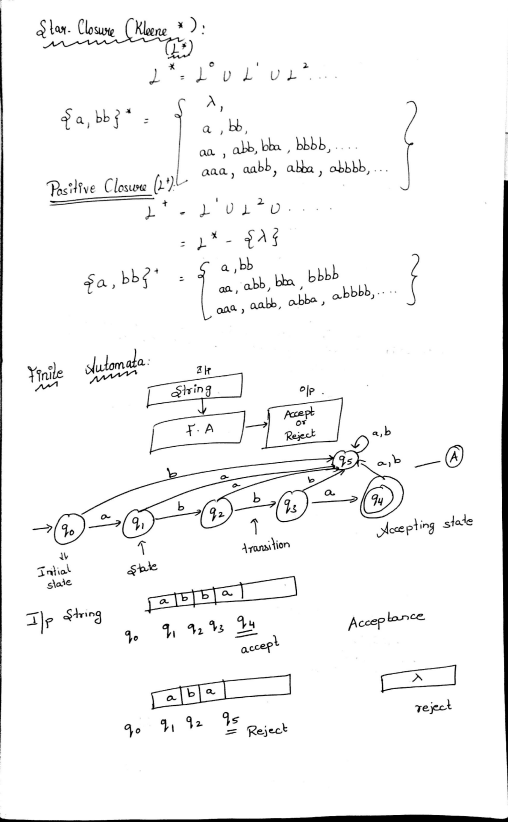 Star-Closure (Kleene *):
(L*)
L* = L⁰ U L¹ U L² ....
{a, bb}* = { λ,
a, bb,
aa, abb, bba, bbbb, ....
aaa, aabb, abba, abbbb, ... }
Positive Closure (L⁺)
L⁺ = L¹ U L² U ....
= L* - {λ}
{a, bb}⁺ = { a, bb
aa, abb, bba, bbbb
aaa, aabb, abba, abbbb, .... }
Finite Automata:
I/p
String
O/p.
F.A
Accept
or
Reject
a,b
q5
b a a b a,b
A
q0 a q1 b q2 b q3 a q4
Initial
state
State
transition
Accepting state
I/p String
a b b a
q0 q1 q2 q3 q4
accept
Acceptance
a b a
q0 q1 q2 q5
Reject
λ
reject